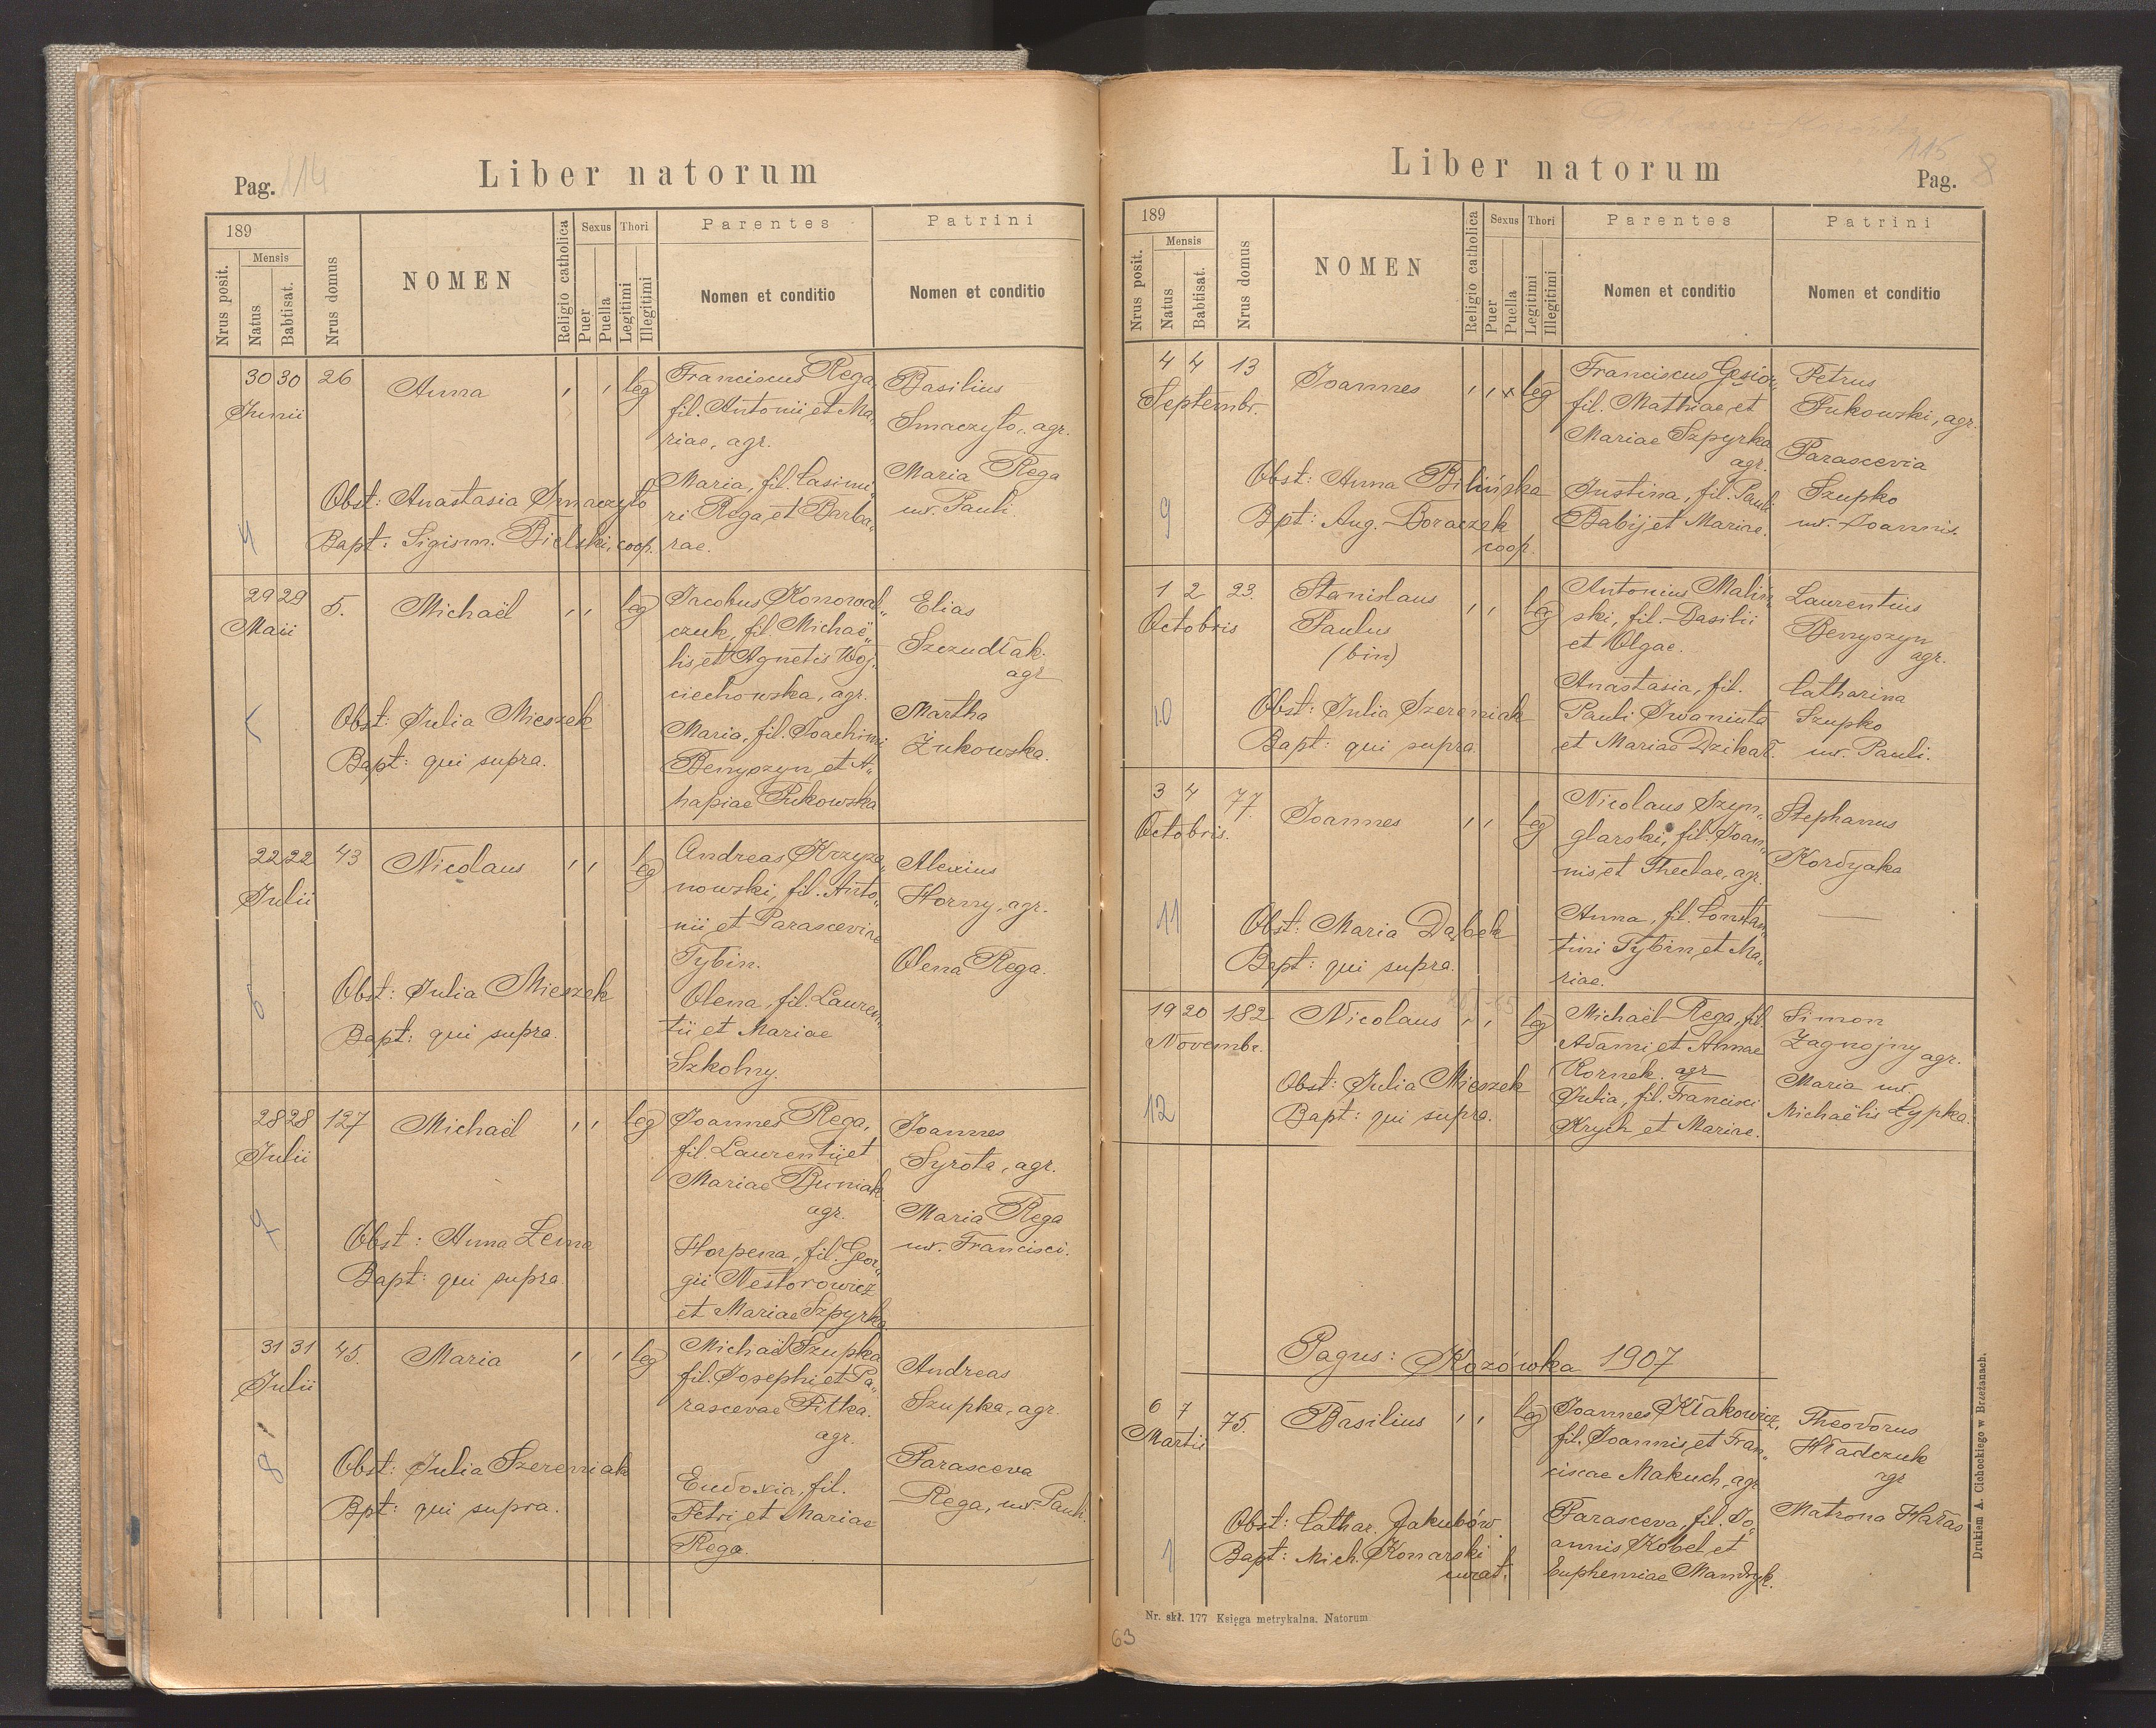 Pag. 114
Liber natorum
189
Nrus posit.
Mensis
Natus
Babtisat.
Nrus domus
NOMEN
Religio catholica
Sexus
Puer
Puella
Thori
Legitimi
Illegitimi
Parentes
Nomen et conditio
Patrini
Nomen et conditio
4
30 30 26
Junii
Anna
, , leg
Obst: Anastasia Smaczyło
Bapt: Sigism. Bielski, coop.
Franciscus Rega,
fil. Antonii et Ma„
riae, agr.
Maria, fil. Casimi„
ri Rega et Barba„
rae.
Basilius
Smaczyło, agr.
Maria Rega
ux. Pauli
5
29 29 5.
Maii
Michaël
, , leg
Obst: Julia Mieszek
Bapt: qui supra.
Jacobus Konowal„
czuk, fil. Michaë„
lis et Agnetis Woj„
ciechowska, agr.
Maria, fil. Joachimi
Benyszyn et A„
hapiae Pukowska
Elias
Szczudlak.
agr
Martha
Żukowska.
6
22 22 43
Julii
Nicolaus
, , leg
Obst: Julia Mieszek
Bapt: qui supra.
Andreas Krzyża„
nowski, fil. Anto„
nii et Parasceviae
Tybin.
Olena, fil. Lauren„
tii et Mariae
Szkolny.
Alexius
Horny, agr.
Olena Rega.
7
28 28 127
Julii
Michaël
, , leg
Obst: Anna Lema
Bapt: qui supra.
Joannes Rega,
fil. Laurentii et
Mariae Buniak.
agr.
Horpena, fil. Geor„
gii Nestorowicz
et Mariae Szpyrka.
Joannes
Syrota, agr.
Maria Rega
ux. Francisci.
8
31 31 45.
Julii
Maria
, , leg
Obst: Julia Szeremiak
Bpt: qui supra.
Michaël Szupka
fil. Josephi et Pa„
rascevae Pitka.
agr.
Eudoxia, fil.
Petri et Mariae
Rega.
Andreas
Szupka, agr.
Parasceva
Rega, ux. Pauli.
Liber natorum
115
Pag. 8
189
Nrus posit.
Mensis
Natus
Babtisat.
Nrus domus
NOMEN
Religio catholica
Sexus
Puer
Puella
Thori
Legitimi
Illegitimi
Parentes
Nomen et conditio
Patrini
Nomen et conditio
9
4 4 13
Septembr.
Joannes
, , x leg
Obst: Anna Bilińska
Bpt: Aug. Boraczek
coop.
Franciscus Gęsior,
fil. Mathiae et
Mariae Szpyrka
agr.
Justina, fil. Pauli
Babij et Mariae.
Petrus
Pukowski, agr.
Parascevia
Szupko
ux. Joannis.
10
1 2 23.
Octobris
Stanislaus
Paulus
(bin)
, , leg
Obst: Julia Szeremiak
Bapt: qui supra.
Antonius Malin„
ski, fil. Basilii
et Olgae.
Anastasia, fil.
Pauli Iwaniuta
et Mariae Dzikał.
Laurentius
Benyszyn
agr.
Catharina
Szupko
ux. Pauli.
11
3 4 77.
Octobris.
Joannes
, , leg
Obst: Maria Dąbek
Bapt: qui supra.
Nicolaus Szyn„
glarski, fil. Joan„
nis et Theclae, agr.
Anna, fil. Constan„
tini Tybin et Ma„
riae.
Stephanus
Kordyaka
12
19 20 182
Novembr.
Nicolaus
, , leg
Obst: Julia Mieszek
Bapt: qui supra.
Michaël Rega, fil.
Adami et Annae
Kornek. agr
Julia, fil. Francisci
Krych et Mariae.
Simon
Zagnojny agr.
Maria ux.
Michaëlis Łypka.
Pagus: Kozówka 1907
1
6 7 75.
Martii
Basilius
, , leg
Obst: Cathar. Jakubów.
Bapt: Mich. Konarski
curat.
Joannes Kłakowicz,
fil. Joannis et Fran„
ciscae Makuch, agr
Parasceva, fil. Jo„
annis Kobel et
Euphemiae Mandryk.
Theodorus
Hładczuk
agr
Matrona Haras
Drukiem A. Cichockiego w Brzeżanach.
Nr. skł. 177 Księga metrykalna. Natorum
63